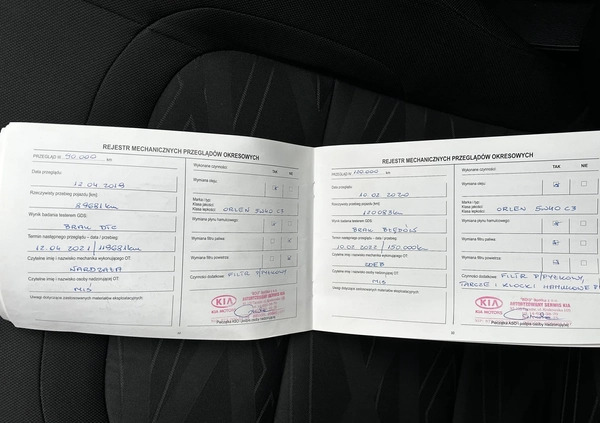 REJESTR MECHANICZNYCH PRZEGLĄDÓW OKRESOWYCH
PRZEGLĄD NR 90.000 km
Data przeglądu:
12.04.2019
Rzeczywisty przebieg pojazdu [km]:
89681km
Wynik badania testerem GDS:
BRAK DTC
Termin następnego przeglądu – data / przebieg:
12.04 2021 / 119681km
Czytelne imię i nazwisko mechanika wykonującego OT:
Czytelne imię i nazwisko osoby nadzorującej OT:
MIŚ
Uwagi dotyczące zastosowanych materiałów eksploatacyjnych:
Wykonane czynności:
TAK NIE
Wymiana oleju:
Marka i typ:
Klasa jakości:
Klasa lepkości: ORLEN 5W40 C3
Wymiana płynu hamulcowego:
Wymiana filtru paliwa:
Wymiana filtru powietrza:
Czynności dodatkowe: FILTR P/PYŁKOWY
KIA
KIA MOTORS
AUTORYZOWANY SERWIS KIA
Pieczątka ASO i podpis osoby nadzorującej
REJESTR MECHANICZNYCH PRZEGLĄDÓW OKRESOWYCH
PRZEGLĄD NR 120.000 km
Data przeglądu:
10.02.2020
Rzeczywisty przebieg pojazdu [km]:
120083km
Wynik badania testerem GDS:
BRAK BŁĘDÓW
Termin następnego przeglądu – data / przebieg:
10.02.2022 / 150.000km
Czytelne imię i nazwisko mechanika wykonującego OT:
Czytelne imię i nazwisko osoby nadzorującej OT:
MIŚ
Uwagi dotyczące zastosowanych materiałów eksploatacyjnych:
Wykonane czynności:
TAK NIE
Wymiana oleju:
Marka i typ:
Klasa jakości:
Klasa lepkości: ORLEN 5W40 C3
Wymiana płynu hamulcowego:
Wymiana filtru paliwa:
Wymiana filtru powietrza:
Czynności dodatkowe: FILTR P/PYŁKOWY,
TARCZE I KLOCKI HAMULCOWE
KIA
KIA MOTORS
AUTORYZOWANY SERWIS KIA
Pieczątka ASO i podpis osoby nadzorującej